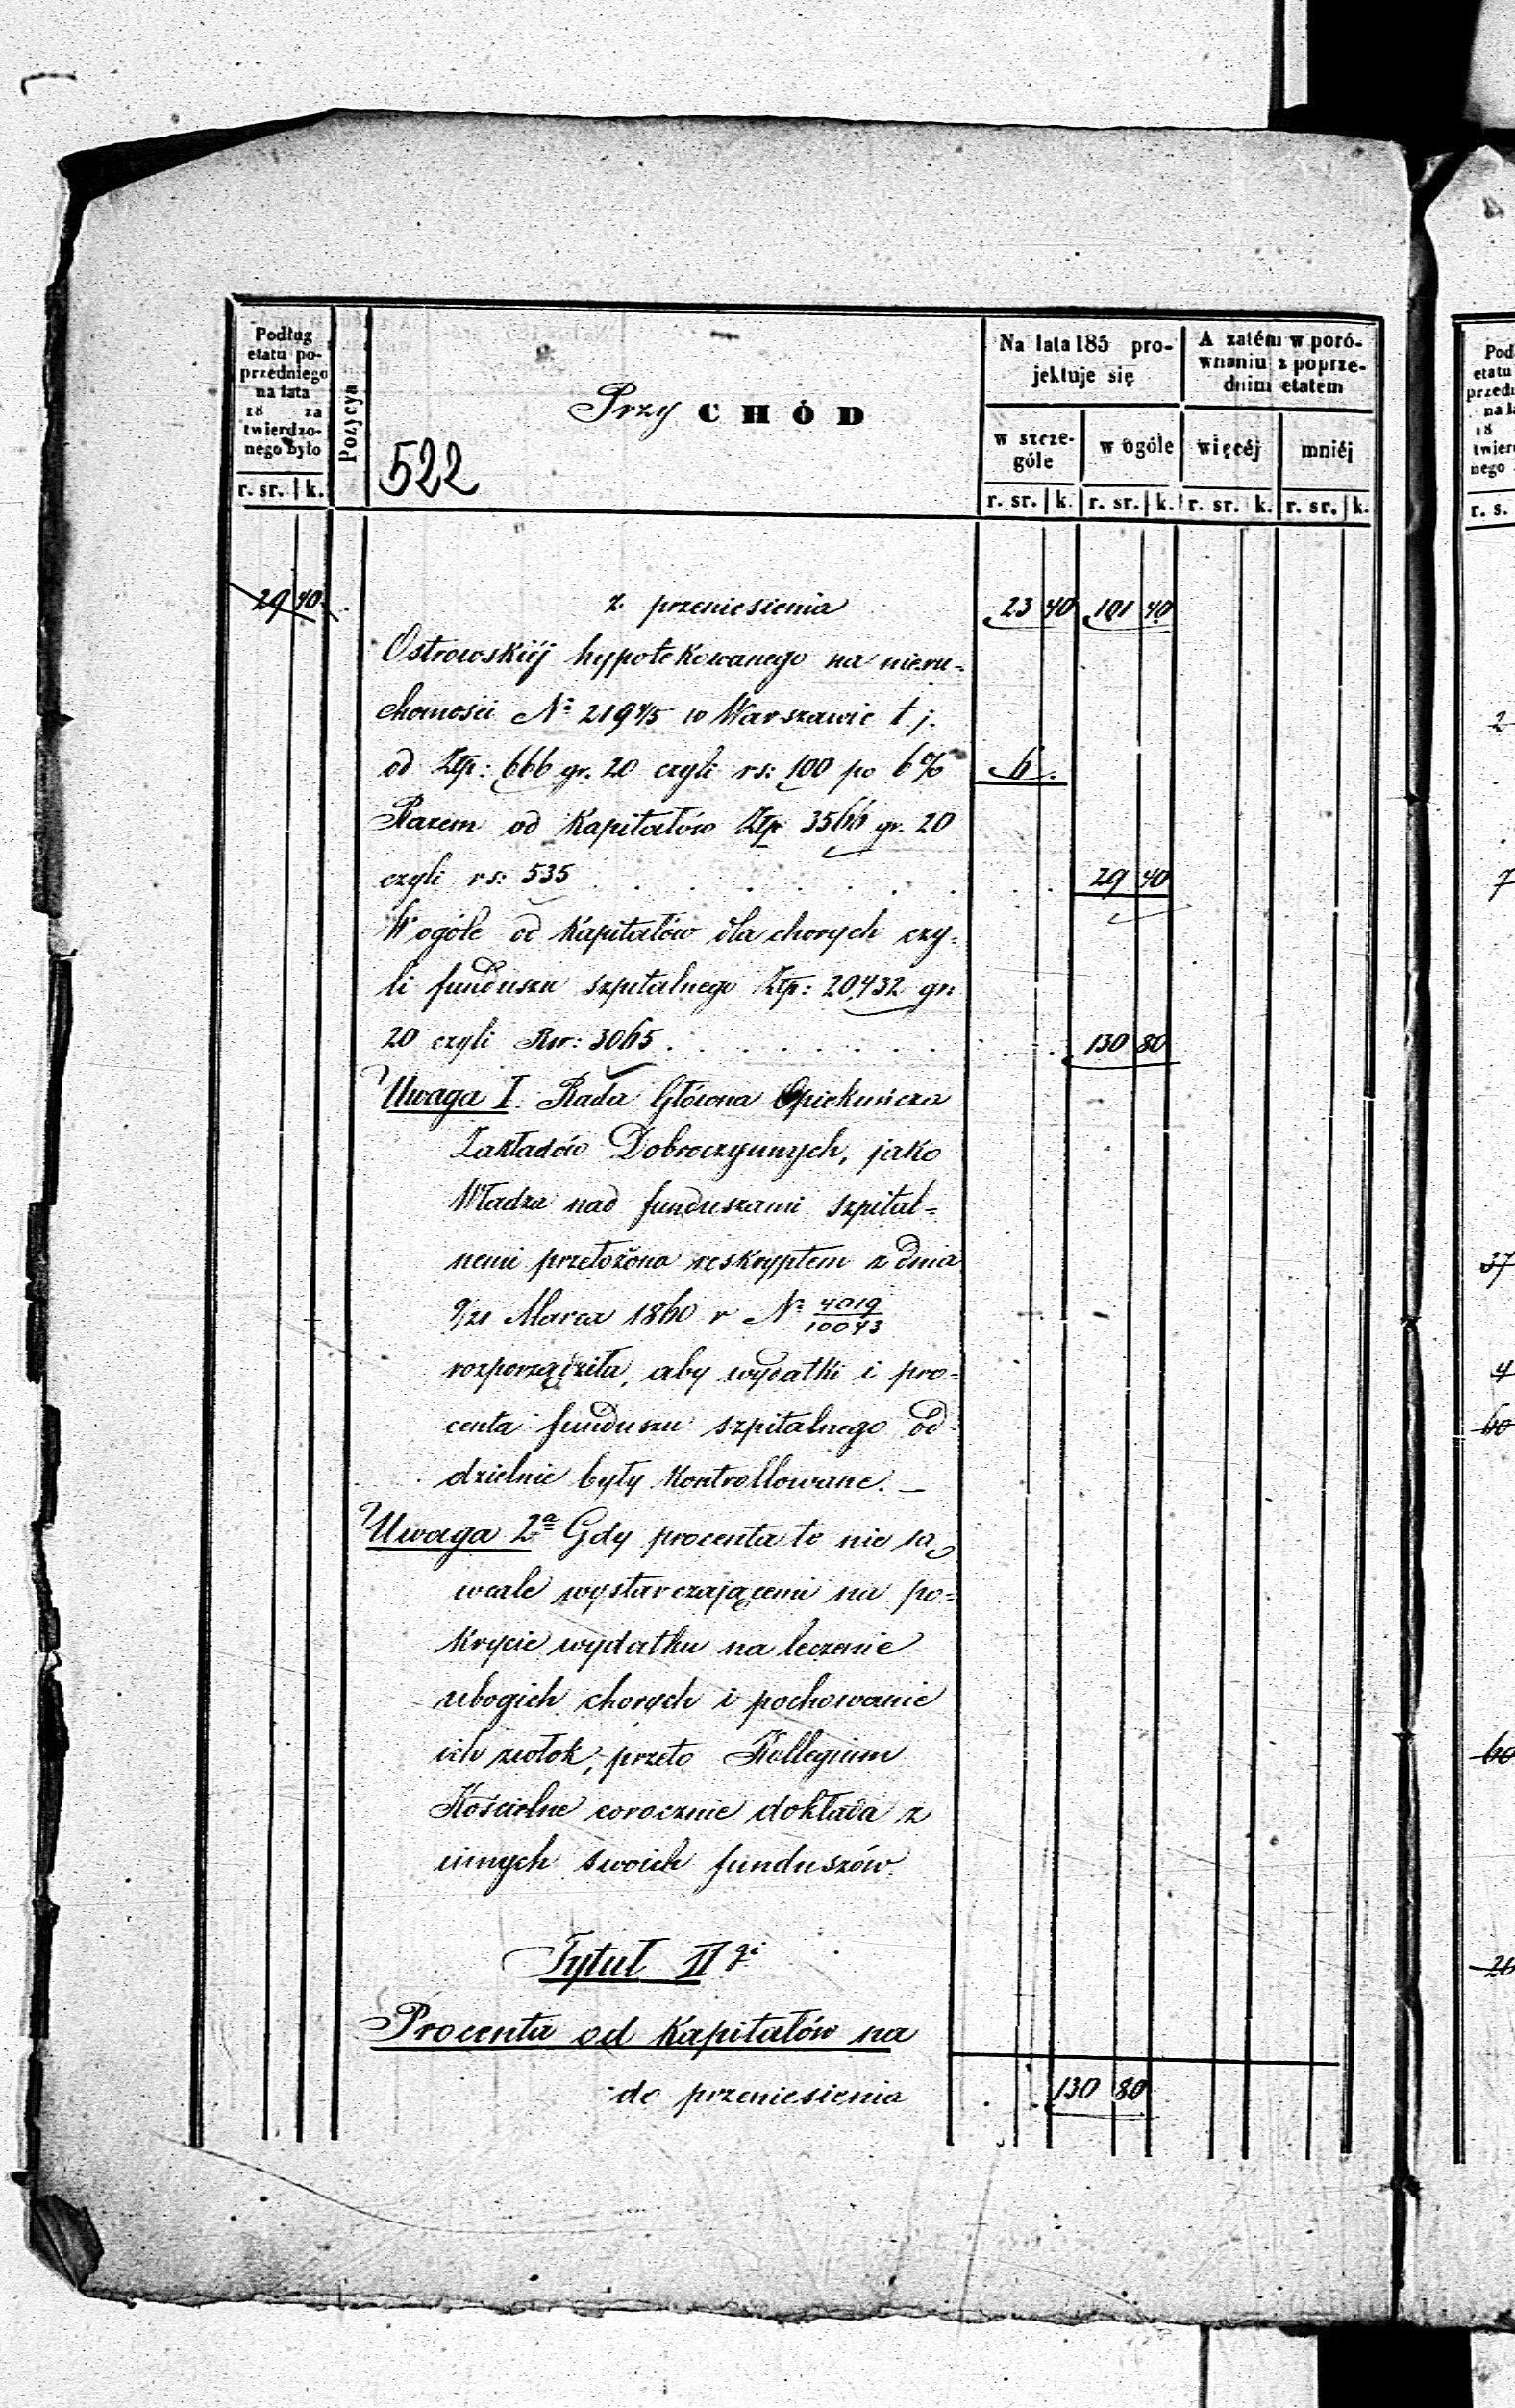 Podług
etatu po-
przedniego
na lata
18 za
twierdzo-
nego było
r. sr. k.
Pozycya
522
Przy CHÓD
Na lata 185 pro-
jektuje się
w szcze-
góle
w ogóle
r. sr. k. r. sr. k.
A zatém w poró-
wnaniu z poprze-
dnim etatem
więcéj
mniéj
r. sr. k. r. sr. k.
29 40 z przeniesienia 23 40 101 40
Ostrowskiéj hypotekowanego na nieru-
chomości No 2194/5 w Warszawie t. j.
od Złp: 666 gr. 20 czyli rs: 100 po 6% 6.
Razem od Kapitałów Złp 3566 gr. 20
czyli rs: 535 . . . . . . . . . 29 40
W ogóle od Kapitałów dla chorych czy-
li funduszu szpitalnego Złp: 20,432 gr.
20 czyli Rsr: 3065 . . . . . . . . 130 80
Uwaga I. Rada Główna Opiekuńcza
Zakładów Dobroczynnych, jako
Władza nad funduszami szpital-
nemi przełożona reskryptem z dnia
9/21 Marca 1860 r No 4019/10043
rozporządziła, aby wydatki i pro-
centa funduszu szpitalnego od-
dzielnie były Kontrollowane. —
Uwaga 2a Gdy procenta te nie są
wcale wystarczającemi na po-
krycie wydatku na leczenie
ubogich chorych i pochowanie
ich zwłok, przeto Kollegium
Kościelne corocznie dokłada z
innych swoich funduszów.
Tytuł IIgi
Procenta od Kapitałów na
do przeniesienia . . 130 80
Pod
etatu
przedn
na la
18
twier
nego
r. s.
2
7
37
4
60
60
26